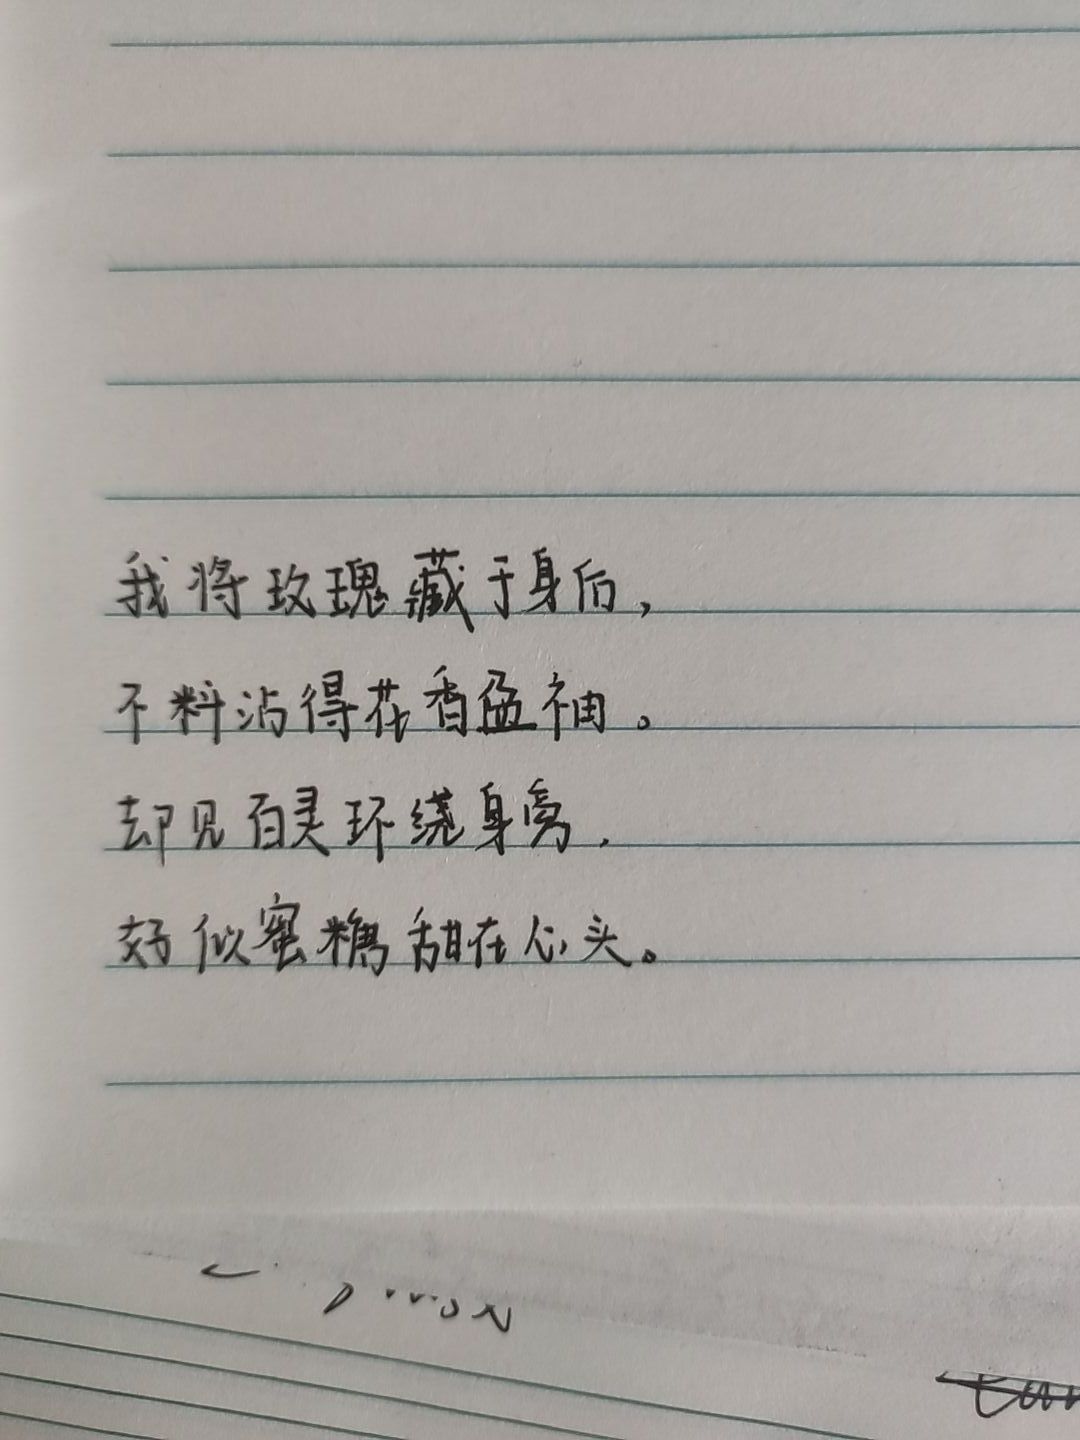 我将玫瑰藏于身后,
不料沾得花香盈袖。
却见百灵环绕身旁,
好似蜜糖甜在心头。